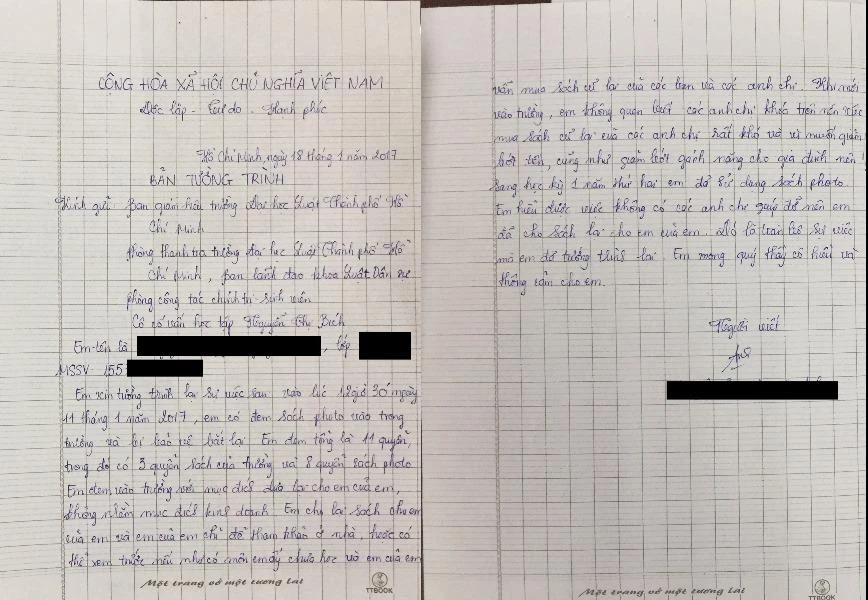 CỘNG HÒA XÃ HỘI CHỦ NGHĨA VIỆT NAM
Độc lập - Tự do - Hạnh phúc
Hồ Chí Minh, ngày 18 tháng 1 năm 2017
BẢN TƯỜNG TRÌNH
Kính gửi: Ban giám hiệu trường Đại học Luật Thành phố Hồ
Chí Minh
Phòng thanh tra trường Đại học Luật Thành phố Hồ
Chí Minh, Ban lãnh đạo khoa Luật Dân sự
phòng công tác chính trị sinh viên
Cô cố vấn học tập Nguyễn Thị Bích
Em tên là , lớp
MSSV 155
Em xin tường trình lại sự việc sau: vào lúc 12 giờ 30 ngày
11 tháng 1 năm 2017, em có đem sách photo vào trong
trường và bị bảo vệ bắt lại. Em đem tổng là 11 quyển,
trong đó có 3 quyển sách của trường và 8 quyển sách photo
Em đem vào trường với mục đích đưa lại cho em của em,
không nhằm mục đích kinh doanh. Em cho lại sách cho em
của em và em của em chỉ để tham khảo ở nhà, hoặc có
thể xem trước nếu như có môn em ấy chưa học và em của em
vẫn mua sách cũ lại của các bạn và các anh chị. Khi mới
vào trường, em không quen biết các anh chị khóa trên nên việc
mua sách cũ lại của các anh chị rất khó và vì muốn giảm
bớt tiền, cũng như giảm bớt gánh nặng cho gia đình nên
sang học kỳ 1 năm thứ hai em đã sử dụng sách photo.
Em hiểu được việc không có các anh chị giúp đỡ nên em
đã cho sách lại cho em của em. Đó là toàn bộ sự việc
mà em đã tường trình lại. Em mong quý thầy cô hiểu và
thông cảm cho em.
Người viết
Một trang vở một tương lai
TTBOOK
Một trang vở một tương lai
TTBOOK